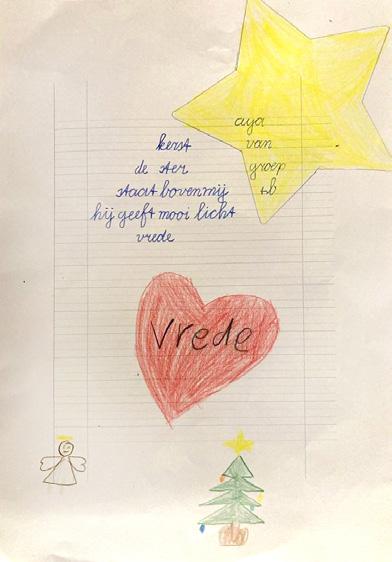 aya
van
groep
kerst
de ster
staat boven mij
hij geeft mooi licht
vrede
Vrede